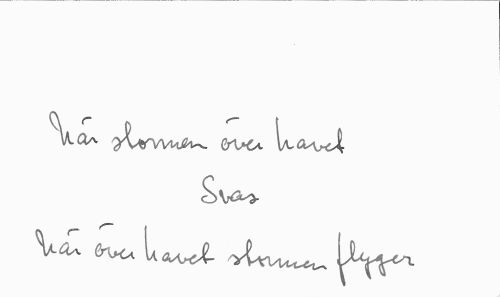 När stormen över havet
Svas
När över havet stormen flyger